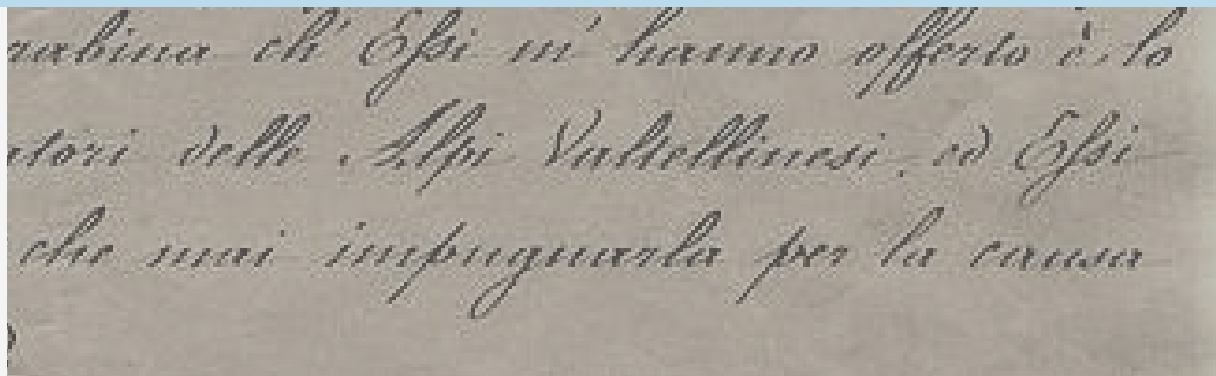 ch' Essi m' hanno offerto è lo
delle Alpi Valtellinesi, ed Essi
che mai impugnarla per la causa